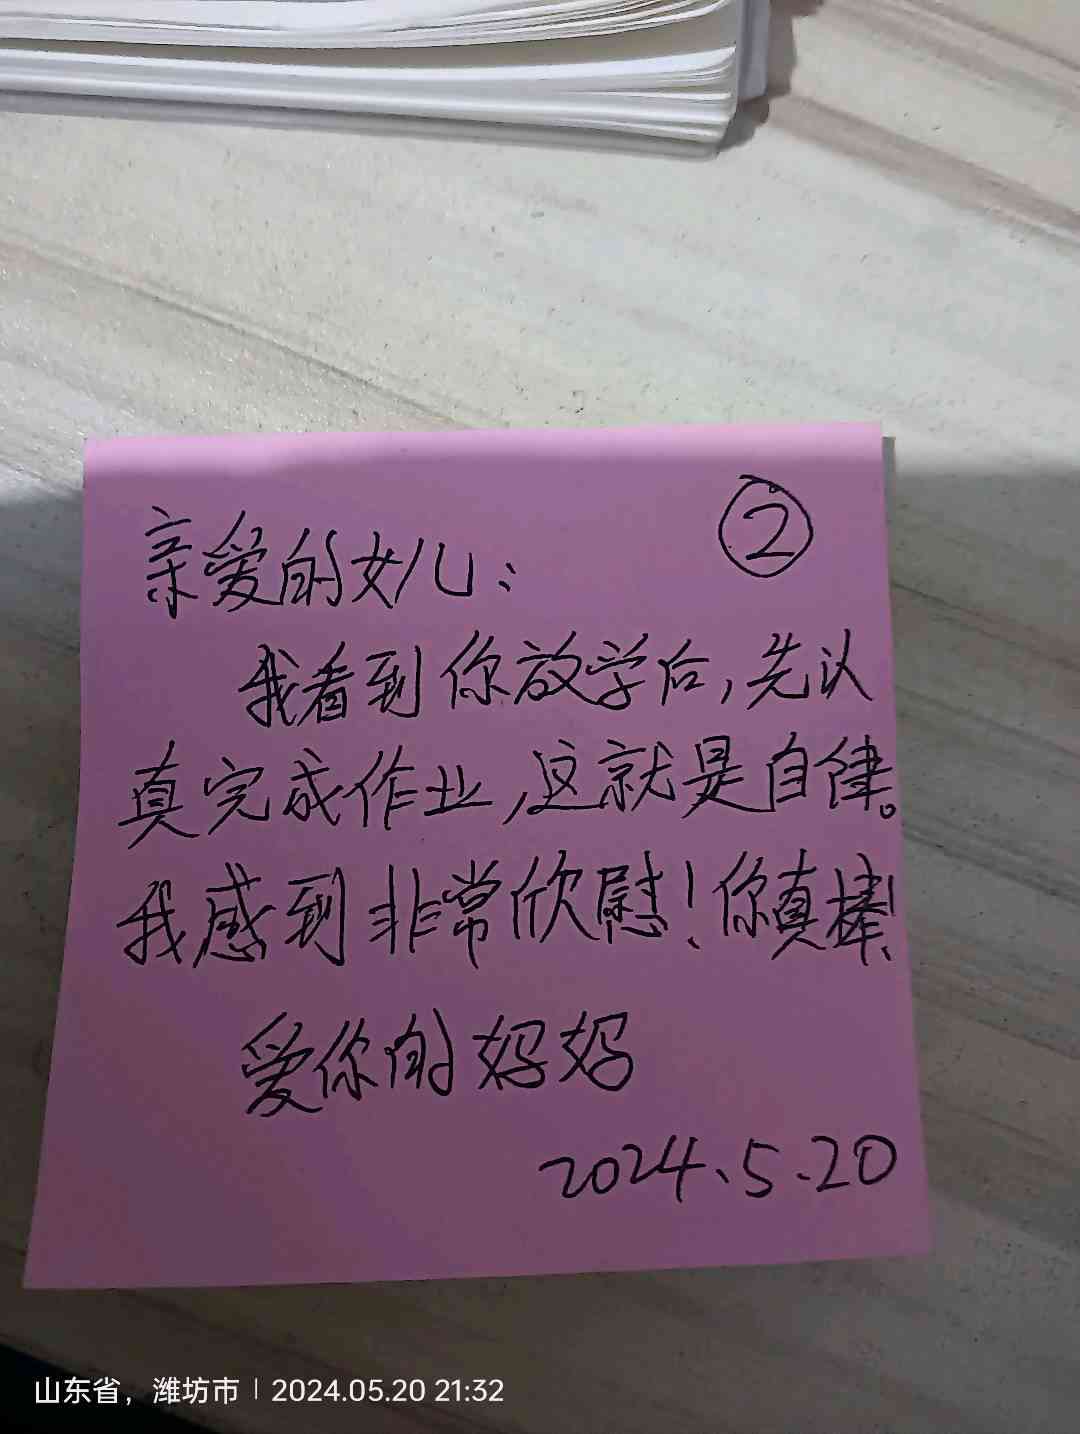 ②
亲爱的女儿：
我看到你放学后，先认
真完成作业，这就是自律。
我感到非常欣慰！你真棒！
爱你的妈妈
2024.5.20
山东省，潍坊市 | 2024.05.20 21:32